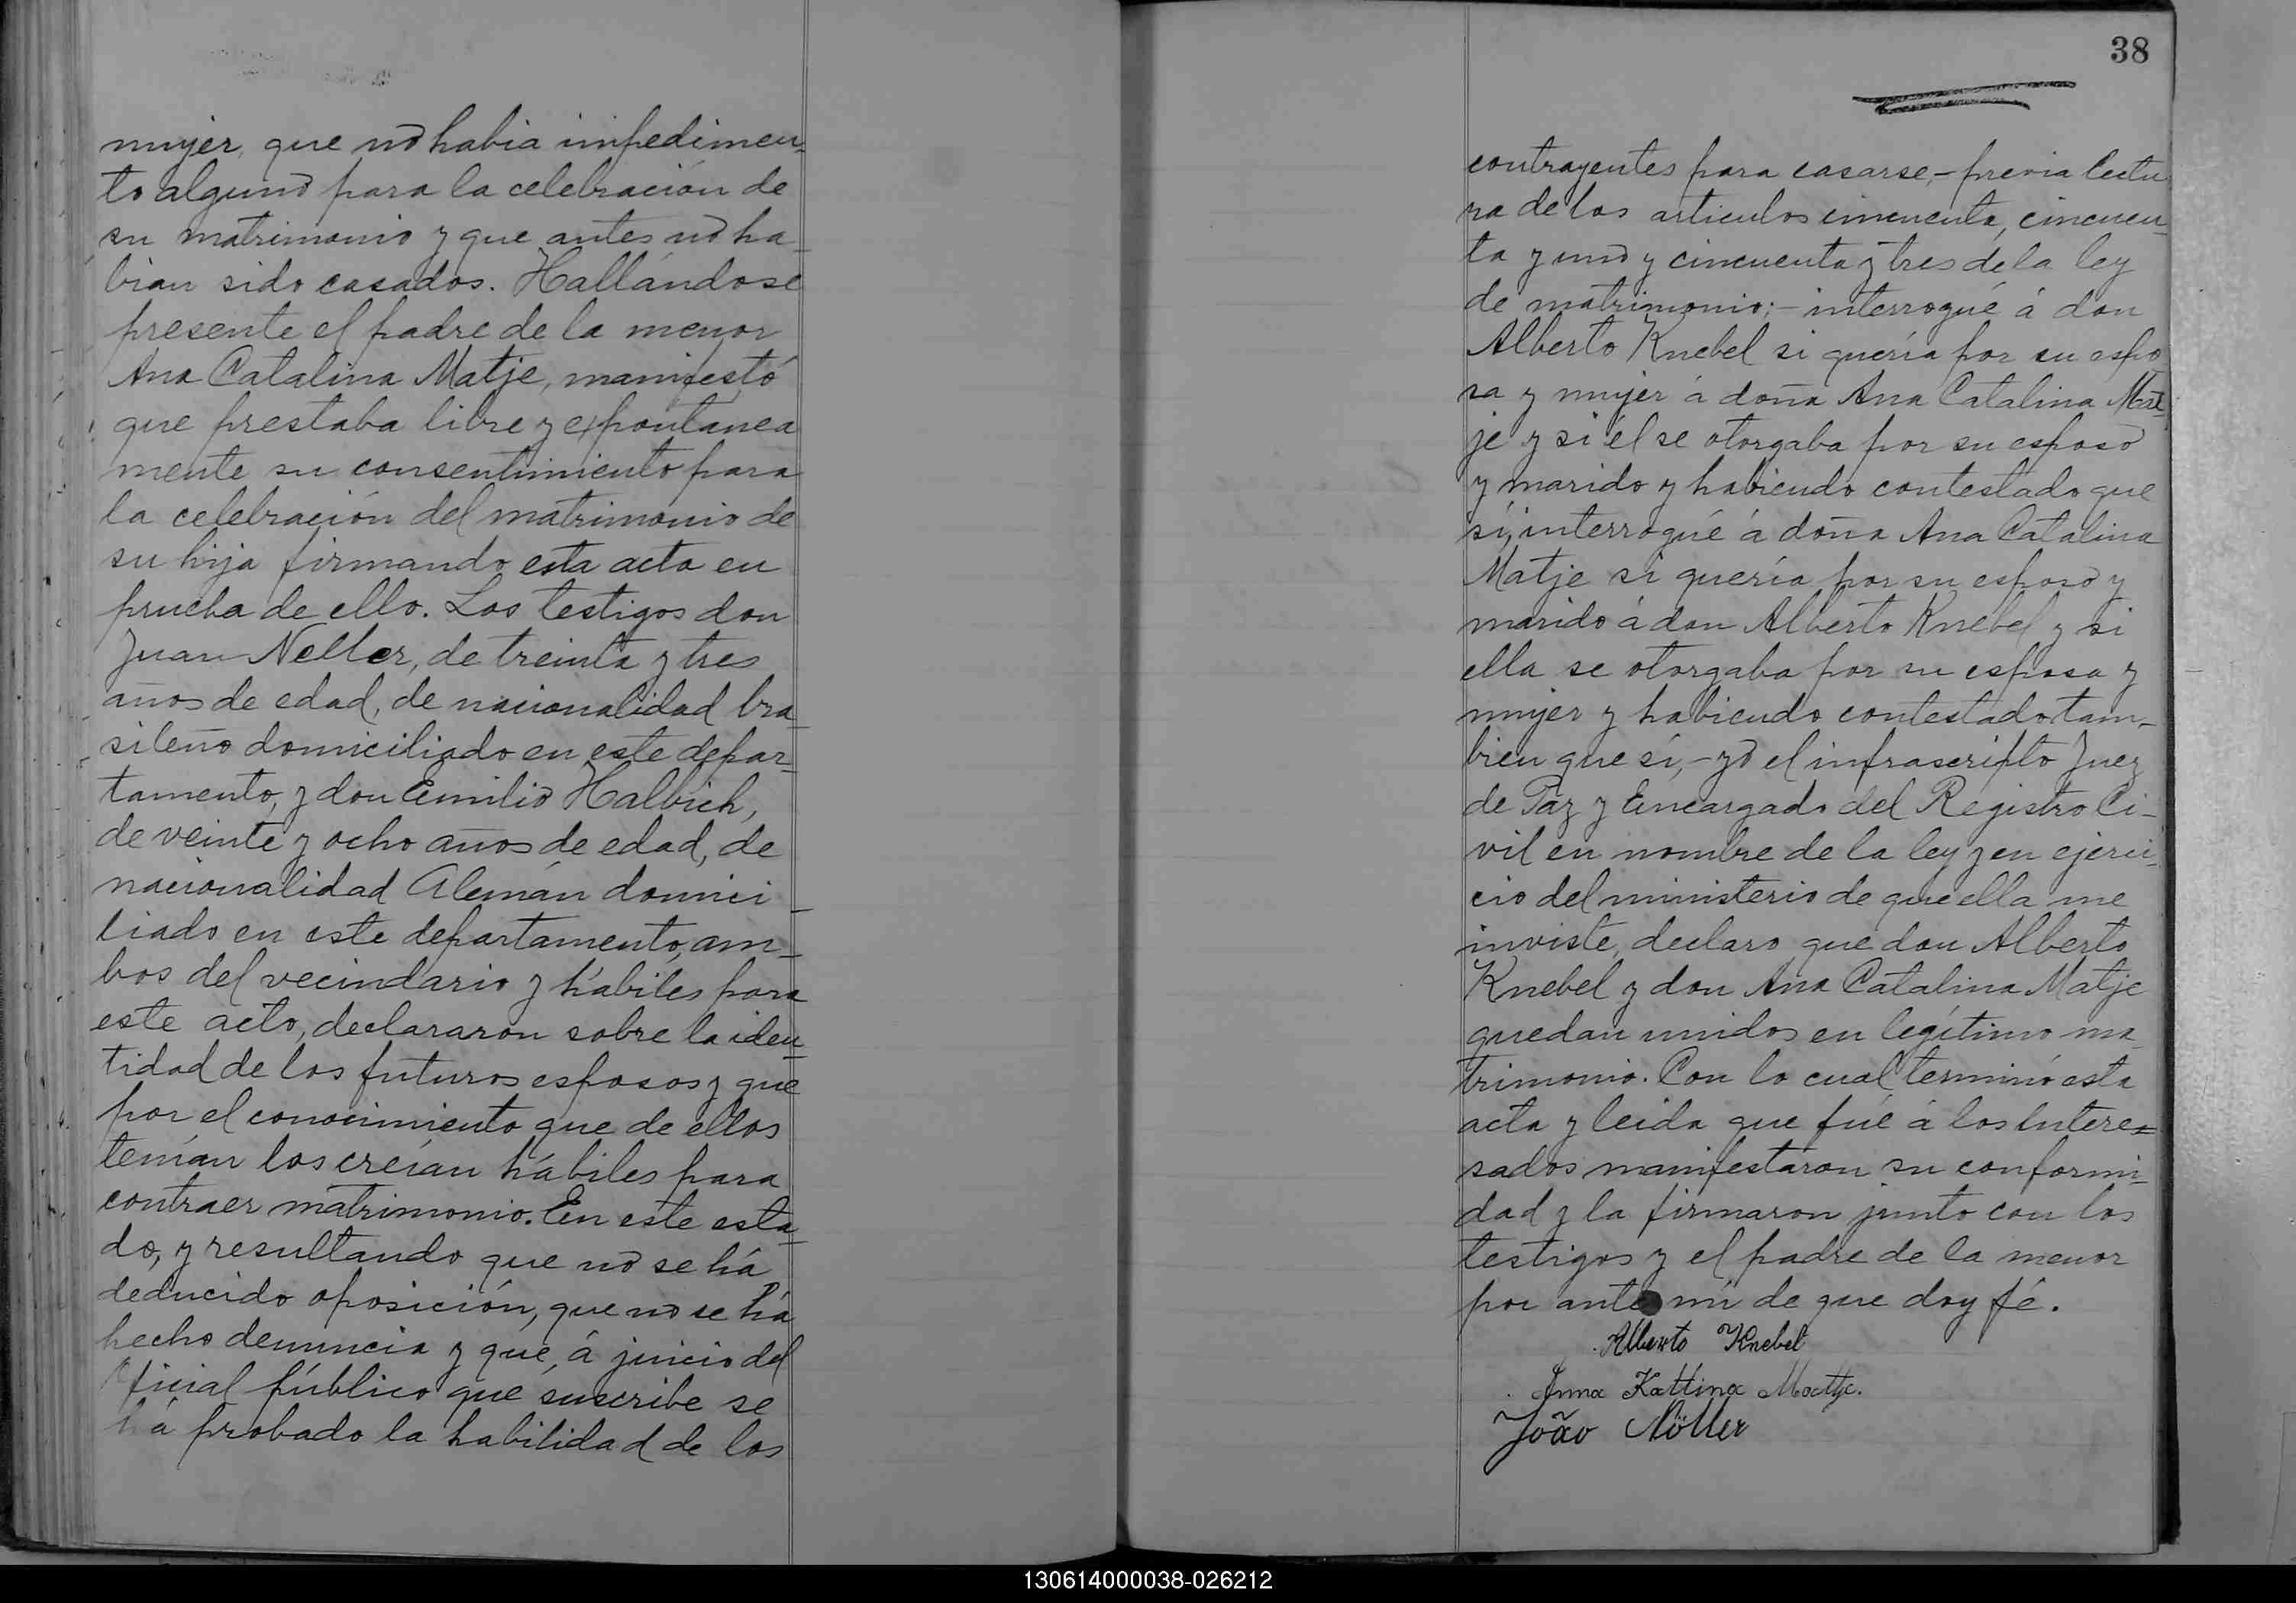 mujer, que nó habia impedimen-
to alguno para la celebración de
su matrimonio y que antes nó ha-
bian sido casados. Hallándose
presente el padre de la menor
Ana Catalina Matje, manifestó
que prestaba libre y espontanea
mente su consentimiento para
la celebración del matrimonio de
su hija firmando esta acta en
prueba de ello. Los testigos don
Juan Neller, de treinta y tres
años de edad, de nacionalidad bra-
sileño domiciliado en este depar-
tamento, y don Emilio Halbich,
de veinte y ocho años de edad, de
nacionalidad Alemán domici-
liado en este departamento, am-
bos del vecindario y hábiles para
este acto, declararon sobre la iden-
tidad de los futuros esposos y que
por el conocimiento que de ellos
tenían los creían hábiles para
contraer matrimonio. En este esta-
do, y resultando que nó se há
deducido oposición, que no se há
hecho denuncia y que, á juicio del
Oficial público que suscribe se
há probado la habilidad de los
38
contrayentes para casarse,- previa lectu
ra de los articulos cincuenta, cincuen-
ta y uno y cincuenta y tres de la ley
de matrimonio;- interrogué á don
Alberto Knebel si quería por su espo
sa y mujer á doña Ana Catalina Mat-
je y si él se otorgaba por su esposo
y marido y habiendo contestado que
sí, interrogué á doña Ana Catalina
Matje si quería por su esposo y
marido á don Alberto Knebel y si
ella se otorgaba por su esposa y
mujer y habiendo contestado tam-
bien que sí,- yó el infrascripto Juez
de Paz y Encargado del Registro Ci-
vil en nombre de la ley y en ejerci-
cio del ministerio de que ella me
inviste, declaro que don Alberto
Knebel y don Ana Catalina Matje
quedan unidos en legítimo ma-
trimonio. Con lo cual terminó esta
acta y leida que fué á los Intere=
sados manifestaron su conformi-
dad y la firmaron junto con los
testigos y el padre de la menor
por ante mí de que doy fé.
Alberto Knebel
Anna Kattina Maettje.
João Nöller
130614000038-026212